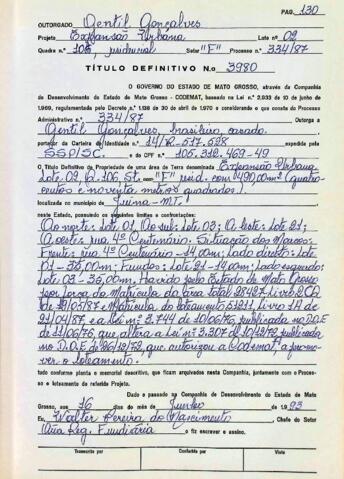 PAG. 130
OUTORGADO Gentil Gonçalves
Projeto Expansão Urbana Lote n.o 02
Quadra n.o 106, residencial Setor "F" Processo n.o 334/87
TÍTULO DEFINITIVO N.o 3980
O GOVERNO DO ESTADO DE MATO GROSSO, através da Companhia
de Desenvolvimento do Estado de Mato Grosso - CODEMAT, baseado na Lei n.o 2.933 de 10 de junho de
1969, regulamentada pelo Decreto n.o 1.138 de 30 de abril de 1970 e considerando o que consta do Processo
Administrativo n.o 334/87 Outorga a
Gentil Gonçalves, brasileiro, casado.
portador da Carteira de Identidade n.o 14/R-517.528 expedida pela
SSP/SC. e do CPF n.o 105.312.469-49
O Título Definitivo da Propriedade de uma área de Terra denominada Expansão Urbana,
Lote 02, Q. 106, St. "F" resid. com 490,00m² (quatro
centos e noventa metros quadrados).
localizada no município de Juína-MT.
neste Estado, possuindo os seguintes limites e confrontações:
Ao norte: Lote 01, Ao sul: Lote 03; A leste: Lote 21;
A oeste: rua 4º Centenário. Situação dos Marcos:
Frente: rua 4º Centenário - 14,00m; Lado direito: Lote
01 - 35,00m; Fundos: Lote 21 - 14,00m; Lado esquerdo:
Lote 03 - 35,00m. Havido pelo Estado de Mato Grosso
por força da Matrícula da área total 28427 Livro 2
de Matrícula do loteamento Livro 1A de
21/01/87 e a Lei n.o 3.744 de 10/06/76, publicada no D.O.E
de 11/06/76, que altera a Lei n.o 3.307 de 10/12/72, publicada
no D.O.E de 26/12/72, que autorizou a Codemat, a promo-
ver o loteamento.
tudo conforme planta e memorial descritivo, que ficam arquivados nesta Companhia, juntamente com o Proces-
so e loteamento do referido Projeto.
Dado e passado na Companhia de Desenvolvimento do Estado de Mato
Grosso, aos 16 dias do mês de Junho de 1.993
Eu, Walter Pereira do Nascimento Chefe do Setor
Reg. Fundiária o fiz escrever e assino.
Transcrito por Conferido por Visto